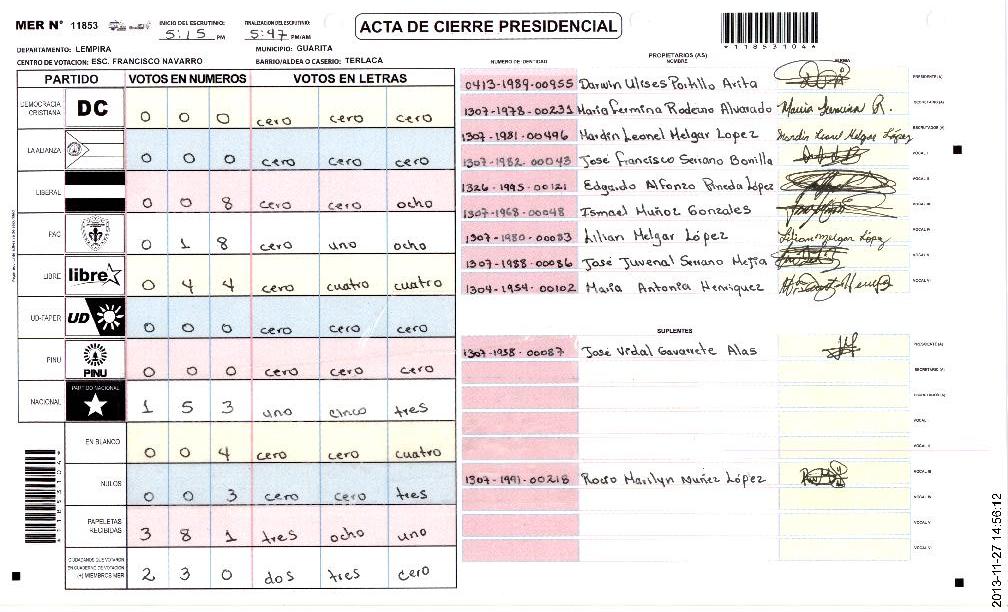 MER Nº 11853
INICIO DEL ESCRUTINIO: 5:15 PM
FINALIZACION DEL ESCRUTINIO: 5:47 PM/AM
ACTA DE CIERRE PRESIDENCIAL
*11853104*
DEPARTAMENTO: LEMPIRA
MUNICIPIO: GUARITA
CENTRO DE VOTACION: ESC. FRANCISCO NAVARRO
BARRIO/ALDEA O CASERIO: TERLACA
PARTIDO VOTOS EN NUMEROS VOTOS EN LETRAS
DEMOCRACIA CRISTIANA DC 0 0 0 cero cero cero
LA ALIANZA 0 0 0 cero cero cero
LIBERAL 0 0 8 cero cero ocho
PAC 0 1 8 cero uno ocho
LIBRE libre 0 4 4 cero cuatro cuatro
UD-FAPER UD 0 0 0 cero cero cero
PINU PINU 0 0 0 cero cero cero
NACIONAL PARTIDO NACIONAL 1 5 3 uno cinco tres
EN BLANCO 0 0 4 cero cero cuatro
NULOS 0 0 3 cero cero tres
PAPELETAS RECIBIDAS 3 8 1 tres ocho uno
CIUDADANOS QUE VOTARON EN CUADERNO DE VOTACION (+) MIEMBROS MER 2 3 0 dos tres cero
*11853104*
PROPIETARIOS (AS)
NUMERO DE IDENTIDAD NOMBRE FIRMA
0413-1989-00955 Darwin Ulises Portillo Arita PRESIDENTE(A)
1307-1978-00231 Maria Fermina Rodeno Alvarado Maria Fermina R. SECRETARIO(A)
1307-1981-00496 Mardin Leonel Melgar Lopez Mardin Leonel Melgar López ESCRUTADOR(A)
1307-1982-00043 José Francisco Serrano Bonilla VOCAL I
1326-1995-00121 Edgardo Alfonzo Pineda López VOCAL II
1307-1968-00048 Ismael Muñoz Gonzales VOCAL III
1307-1980-00083 Lilian Melgar López Lilian Melgar López VOCAL IV
1307-1988-00086 José Juvenal Serrano Mejia VOCAL V
1304-1954-00102 Maria Antonia Henriquez VOCAL VI
SUPLENTES
1307-1958-00087 José Vidal Gavarrete Alas PRESIDENTE(A)
SECRETARIO(A)
ESCRUTADOR(A)
VOCAL I
VOCAL II
1307-1991-00218 Rocio Marilyn Nuñez López VOCAL III
VOCAL IV
VOCAL V
VOCAL VI
2013-11-27 14:56:12